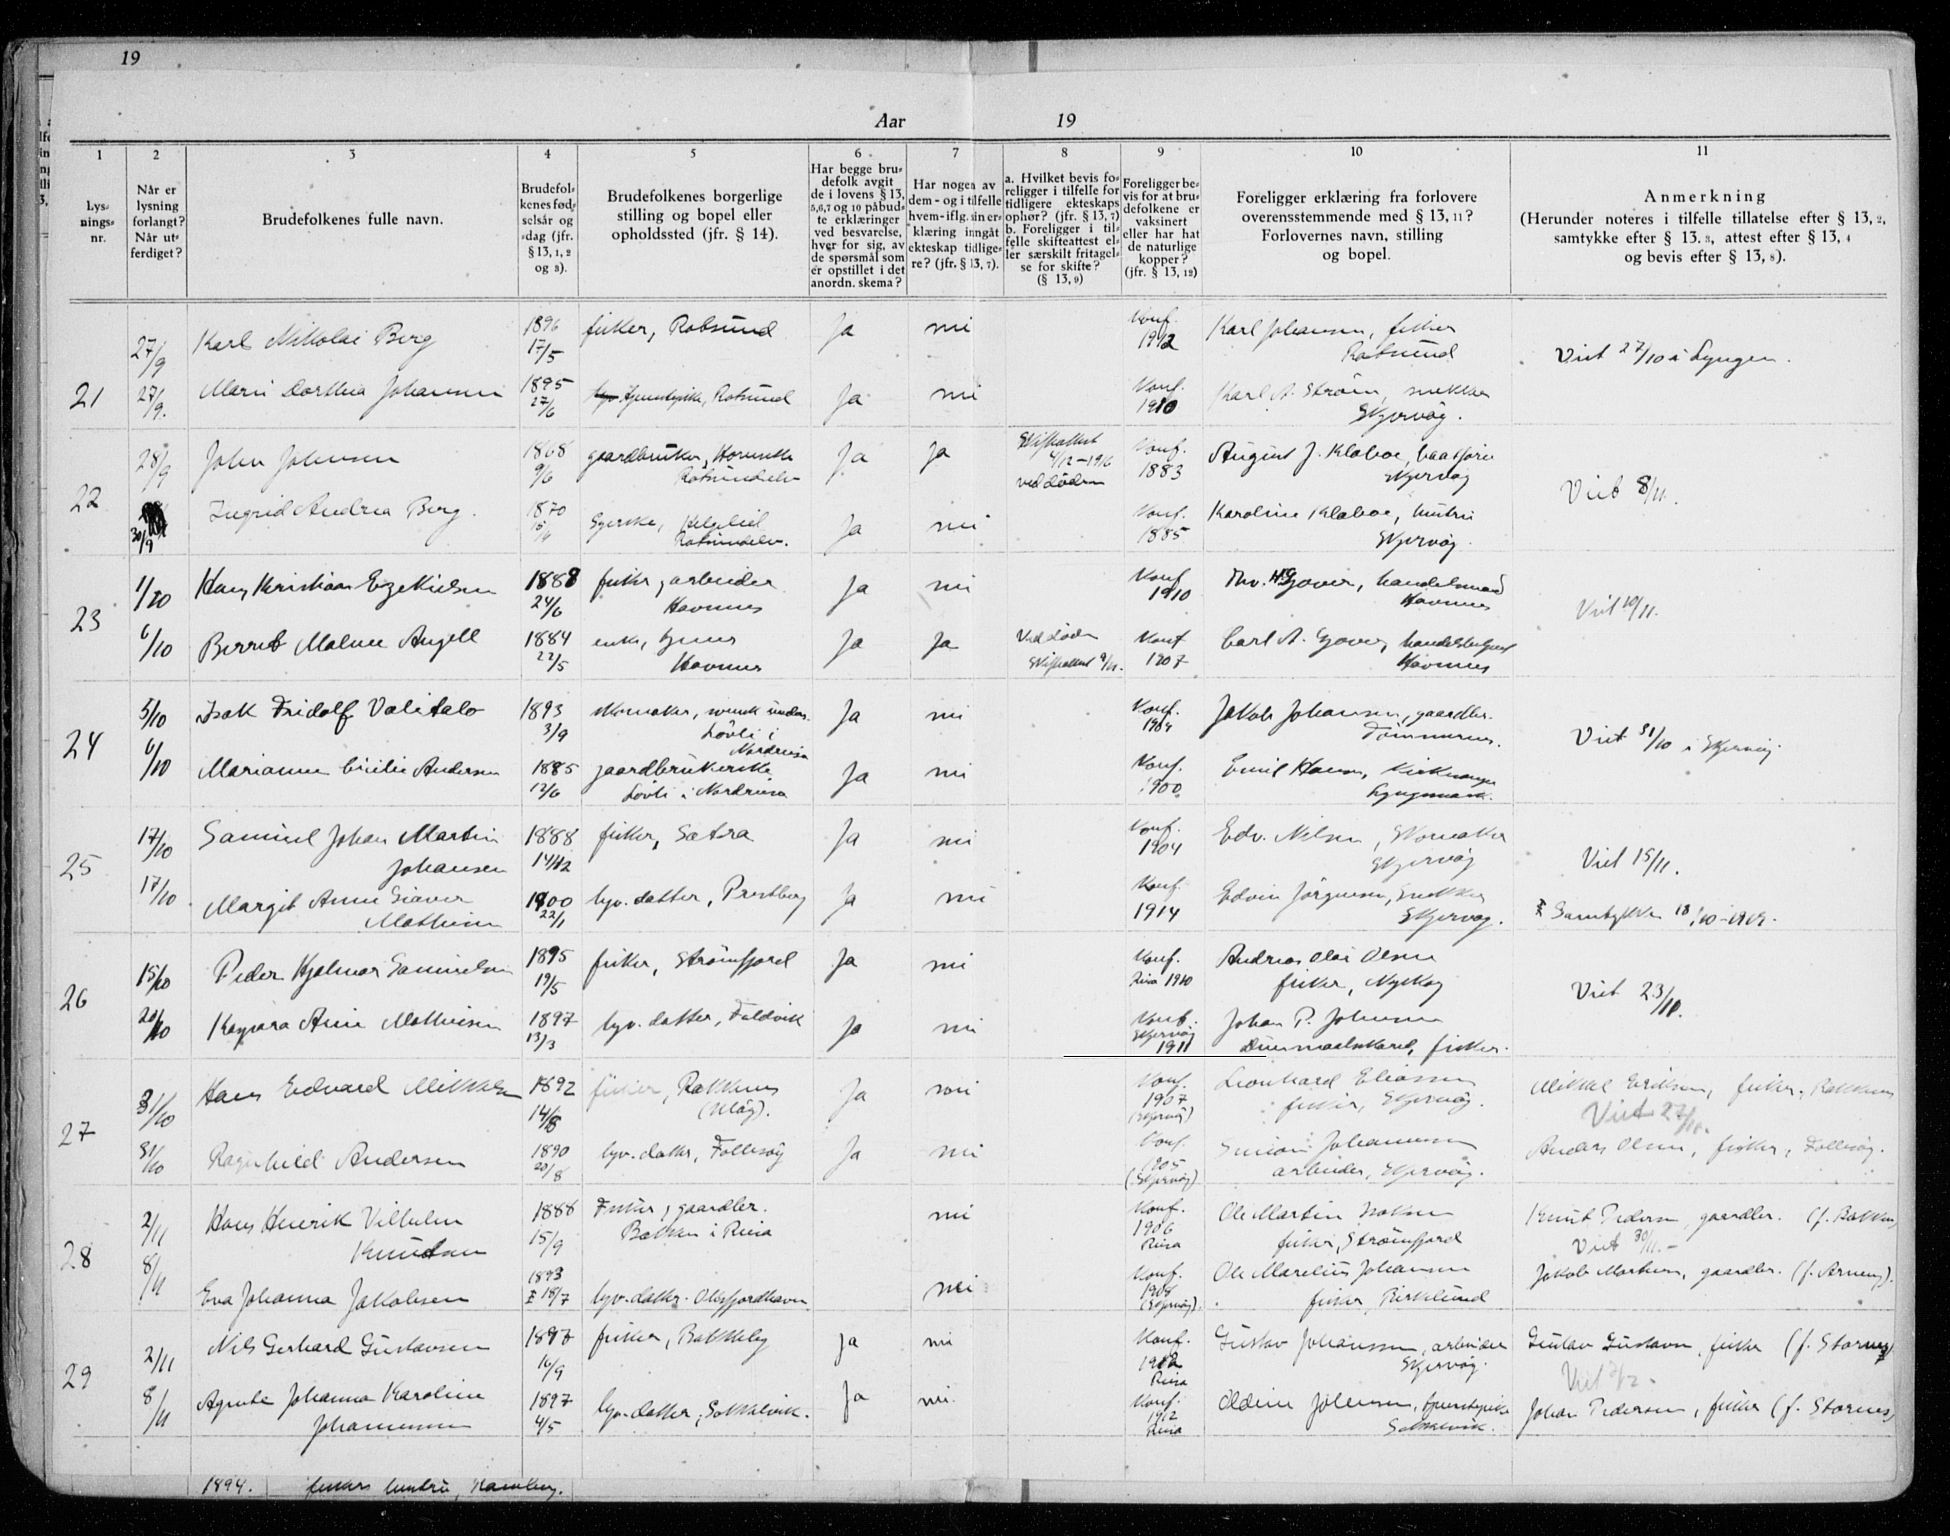 19
Aar 19
1 2 3 4 5 6 7 8 9 10 11
Lys-
nings-
nr.
Når er
lysning
forlangt?
Når ut-
ferdiget?
Brudefolkenes fulle navn.
Brudefol-
kenes fød-
selsår og
-dag (jfr.
§ 13, 1, 2
og 3).
Brudefolkenes borgerlige
stilling og bopel eller
opholdssted (jfr. § 14).
Har begge bru-
defolk avgit
de i lovens § 13,
5,6,7 og 10 påbud-
te erklæringer
ved besvarelse,
hver for sig, av
de spørsmål som
er opstillet i det
anordn. skema?
Har nogen av
dem - og i tilfelle
hvem - iflg. sin er-
klæring inngåt
ekteskap tidlige-
re? (jfr. § 13, 7).
a. Hvilket bevis fo-
religger i tilfelle for
tidligere ekteskaps
ophør? (jfr. § 13, 7)
b. Foreligger i til-
felle skifteattest el-
ler særskilt fritagel-
se for skifte?
(§ 13, 9)
Foreligger be-
vis for at bru-
defolkene er
vaksinert
eller har hat
de naturlige
kopper?
(jfr. § 13, 12)
Foreligger erklæring fra forlovere
overensstemmende med § 13, 11?
Forlovernes navn, stilling
og bopel.
Anmerkning
(Herunder noteres i tilfelle tillatelse efter § 13, 2,
samtykke efter § 13, 3, attest efter § 13, 4
og bevis efter § 13, 8).
21
27/9
Karl Nikolai Berg
1896
17/5
fisker, Rotsund
Ja
nei
Konf.
1912
Karl Johansen, fisker
Rotsund
Viet 27/10 i Lyngen.
27/9.
Marie Dorthea Johansen
1895
27/6
tjenestepike, Rotsund
Ja
nei
Konf.
1910
Karl A. Strøm, snekker
Skjervøy.
22
28/9
John Johnsen
1868
9/6
gaardbruker,
Rotsundelv
Ja
Ja
Skifteattest
4/12-1916
ved døden
Konf.
1883
August J. Klæboe, baatfører
Skjervøy
Viet 8/11.
30/9
Ingrid Andrea Berg.
1870
Rotsundelv.
Ja
nei
Konf.
1885
Karoline Klæboe, hustru
Skjervøy.
23
1/10
Hans Kristian Ezekielsen
1888
24/6
fisker, arbeider
Havnnes
Ja
nei
Konf
1910
Giæver, handelsmand
Havnnes
Viet 10/11.
6/10
Berret Malene Angell
1884
22/5
enke,
Havnnes
Ja
Ja
Ved døden
Skifteattest
Konf
1907
Carl A. Giæver, handelsbetjent
Havnnes
24
5/10
Isak Fridolf Valitalo
1893
3/9
skomaker, svensk unders.
Løvli i
Nordreisa
Ja
nei
Konf.
1904
Jakob Johansen, gaardbr.
Tømmernes.
Viet 31/10 i Skjervøy.
6/10
Marianne Cicilie Andersen
1885
12/6
gaardbrukerske
Løvli i Nordreisa
Ja
nei
Konf.
1900
Emil Hansen, kirkesanger
Lyngsmark.
25
17/10
Samuel Johan Martin
Johansen
1888
14/12
fisker, Sætra
Ja
nei
Konf.
1904
Edv. Nilsen, Skomaker
Skjervøy
Viet 15/11.
17/10
Margit Anne Giæver
Mathisen
1900
22/1
hjv. datter, Prestberg
Ja
nei
Konf.
1914
Edvin Jørgensen, Snekker
Skjervøy.
Samtykke 18/10-1919.
26
15/10
Peder Hjalmar Samuelsen
1895
19/5
fisker, Strømfjord
Ja
nei
Konf.
1910
Andreas Olai Olsen
fisker, Nyskog
Viet 23/11.
20/10
Kaspara Anne Mathisen
1897
13/3
hjv. datter, Foldvik
Ja
nei
Konf.
Skjervøy
1911
Johan P. Johnsen
Duermaalskaret, fisker.
27
31/10
Hans Edvard Mikkelsen
1892
14/8
fisker, Rakkenes
(Uløy).
Ja
nei
Konf.
1907
(Skjervøy)
Leonhard Eliassen
fisker, Skjervøy.
Mikkel Eriksen, fisker, Rakkenes
Viet 27/11.
31/10
Ragnhild Andersen
1890
20/8
hjv. datter, Follesøy
Ja
nei
Konf.
1905
(Skjervøy)
Simon Johannesen
arbeider, Skjervøy.
Anders Olsen, fisker, Follesøy.
28
2/11
Hans Henrik Vilhelm
Knudsen
1888
15/9
Fisker, gaardbr.
Bakken i Reisa
nei
Konf.
1906
Reisa
Ole Martin Isaksen
fisker, Strømfjord
Knut Pedersen, gaardbr. (f. Bakken)
Viet 30/11.-
8/11
Eva Johanna Jakobsen
1893
18/7
hjv. datter. Oksfjordhavn
nei
Konf.
1908
(Skjervøy).
Ole Marelius Johansen
fisker, Birkelund
Jakob Mortensen, gaardbr. (f. Arnøy).
29
2/11
Nils Gerhard Gustavsen
1897
16/9
fisker, Bakkeby
Ja
nei
Konf.
1912
Reisa
Gustav Johanssen, arbeider
Skjervøy.
Gustav Gustavsen, fisker (f. Stornes)
8/11
Agnete Johanna Karoline
Johannessen
1897
4/5
hjv. datter, Sokkelvik.
Ja
nei.
Konf.
1912
Reisa
Oldine Johnsen, tjenestepike
Sokkelvik.
Johan Pedersen, fisker (f. Stornes)
1894. fiskers hustru,